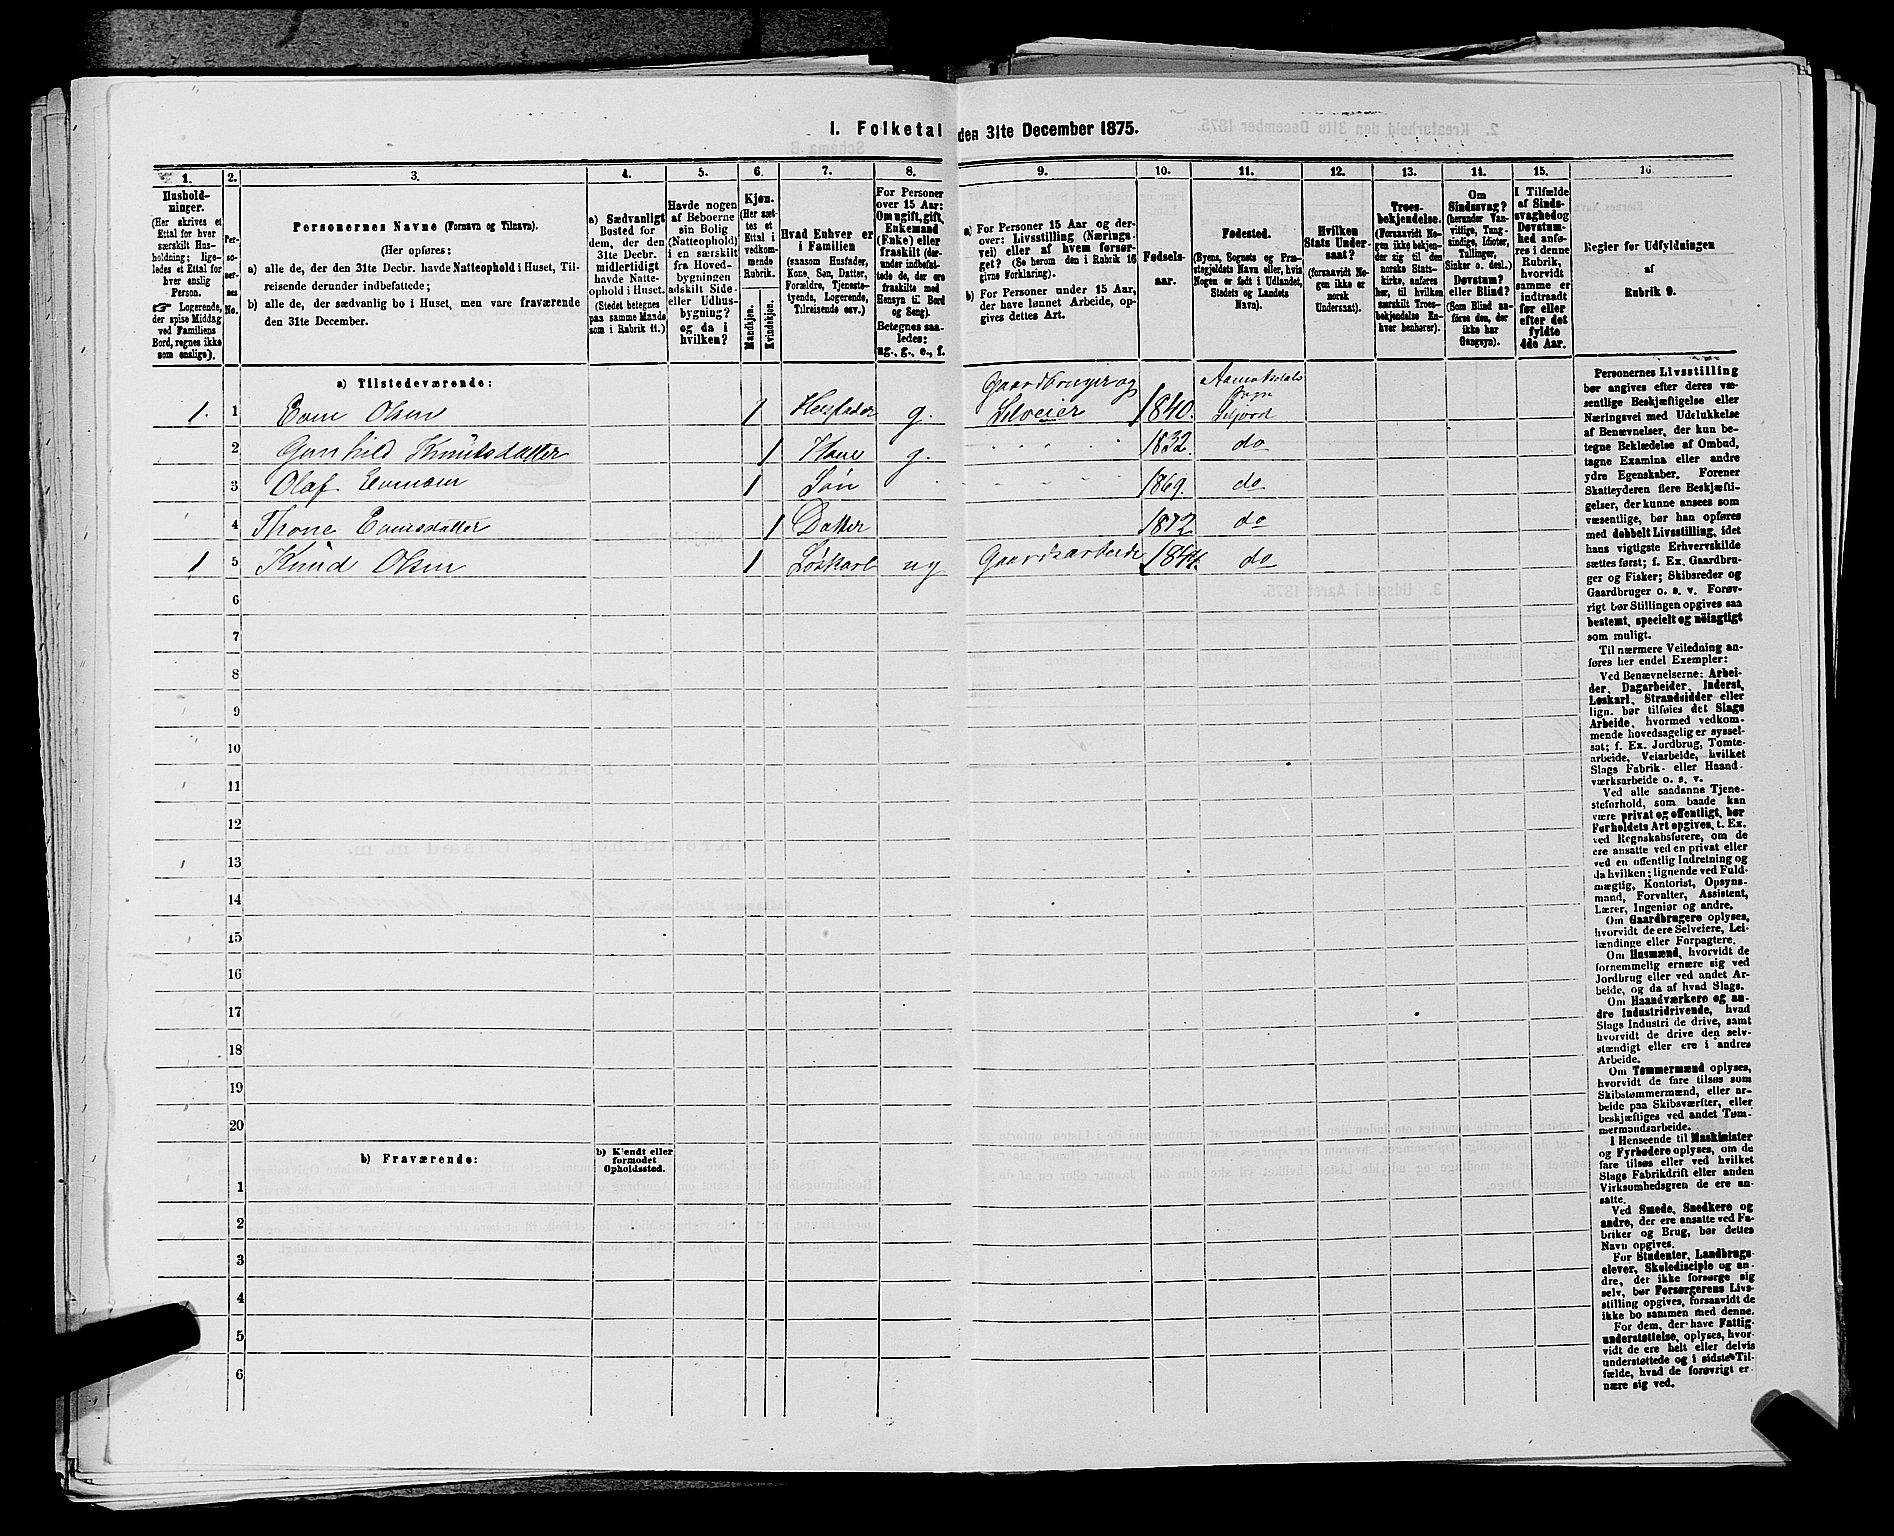 1. Folketal den 31te December 1875.
1. 2. 3. 4. 5. 6. 7. 8. 9. 10. 11. 12. 13. 14. 15. 16.
Hushold-
ninger.
(Her skrives et
Ettal for hver
særskilt Hus-
holdning; lige-
ledes et Ettal for
hver enslig
Person.
☞ Logerende,
der spise Middag
ved Familiens
Bord, regnes ikke
som enslige).
Per-
so-
ner-
nes
No.
Personernes Navne (Fornavn og Tilnavn).
(Her opføres:
a) alle de, der den 31te Decbr. havde Natteophold i Huset, Til-
reisende derunder indbefattede;
b) alle de, der sædvanlig bo i Huset, men vare fraværende
den 31te December.
a) Sædvanligt
Bosted for
dem, der den
31te Decbr.
midlertidigt
havde Natte-
ophold i Huset.
(Stedet betegnes
paa samme Maade
som i Rubrik 11.)
Havde nogen
af Beboerne
sin Bolig
(Natteophold)
i en særskilt
fra Hoved-
bygningen
adskilt Side-
eller Udhus-
bygning?
og da i
hvilken?
Kjøn.
(Her sæt-
tes et
Ettal i
vedkom-
mende
Rubrik.
Mandkjøn.
Kvindekjøn.
Hvad Enhver er
i Familien
(saasom Husfader,
Kone, Søn, Datter,
Forældre, Tjeneste-
tyende, Logerende,
Tilreisende osv.)
For Personer
over 15 Aar:
Om ugift, gift,
Enkemand
(Enke) eller
fraskilt (der-
under indbefat-
tede de, der ere
fraskilte med
Hensyn til Bord
og Seng).
Betegnes saa-
ledes:
ug., g., e., f.
a) For Personer 15 Aar og der-
over: Livsstilling (Nærings-
vei) eller af hvem forsør-
get? (Se herom den i Rubrik 16
givne Forklaring).
b) For Personer under 15 Aar,
der have lønnet Arbeide, op-
gives dettes Art.
Fødsels-
aar.
Fødested.
(Byens, Sognets og Præ-
stegjeldets Navn eller, hvis
Nogen er født i Udlandet,
Stedets og Landets
Navn).
Hvilken
Stats Under-
saat?
(forsaavidt No-
gen ikke er
norsk
Undersaat).
Troes-
bekjendelse.
(Forsaavidt No-
gen ikke bekjen-
der sig til den
norske Stats-
kirke, anføres
her, til hvilken
særskilt Troes-
bekjendelse En-
hver henhører).
Om
Sindssvag?
(herunder Van-
vittige, Tung-
sindige, Idioter,
Tullinger,
Sinker o. desl.)
Døvstum?
eller Blind?
(Som Blind an-
føres den, der
ikke har
Gangsyn).
I Tilfælde
af Sinds-
svaghed og
Døvstum-
hed anfø-
res i denne
Rubrik,
hvorvidt
samme er
indtraadt
før eller
efter det
fyldte
4de Aar.
Regler for Udfyldningen
af
Rubrik 9.
a) Tilstedeværende:
1. 1 Even Olsen 1 Husfader g. Gaardbruger og Selveier 1840. Sogn
2 Gunhild Knutsdatter 1 Kone g. " " " " 1832. do
3 Olaf Evensen 1 Søn " " " " 1869. do
4 Thone Evensdatter 1 Datter 1872 do
1 5 Knud Olsen 1 Løskarl ug Gaardsarbeide 1844. do
6
7
8
9
10
11
12
13
14
15
16
17
18
19
20
b) Fraværende:
b) Kjendt eller
formodet
Opholdssted.
1
2
3
4
5
6
Personernes Livsstilling
bør angives efter deres væ-
sentlige Beskjæftigelse eller
Næringsvei med Udelukkelse
af Benævnelser, der kun be-
tegne Beklædelse af Ombud,
tagne Examina eller andre
ydre Egenskaber. Forener
Skatteyderen flere Beskjæfti-
gelser, der kunne ansees som
væsentlige, bør han opføres
med dobbelt Livsstilling, idet
hans vigtigste Erhvervskilde
sættes først; f. Ex. Gaardbru-
ger og Fisker; Skibsreder og
Gaardbruger o. s. v. Forøv-
rigt bør Stillingen opgives saa
bestemt, specielt og nöiagtigt
som muligt.
Til nærmere Veiledning an-
føres her endel Exempler:
Ved Benævnelserne: Arbei-
der, Dagarbeider, Inderst,
Løskarl, Strandsidder eller
lign. bør tilføies det Slags
Arbeide, hvormed vedkom-
mende hovedsagelig er syssel-
sat; f. Ex. Jordbrug, Tomte-
arbeide, Veiarbeide, hvilket
Slags Fabrik- eller Haand-
værksarbeide o. s. v.
Ved alle saadanne Tjene-
steforhold, som baade kan
være privat og offentligt, bør
Forholdets Art opgives, t. Ex.
ved Regnskabsførere, om de
ere ansatte ved en privat eller
ved en offentlig Indretning og
da hvilken; lignende ved Fuld-
mægtig, Kontorist, Opsyns-
mand, Forvalter, Assistent,
Lærer, Ingeniør og andre.
Om Gaardbrugere oplyses,
hvorvidt de ere Selveiere, Lei-
lændinge eller Forpagtere.
Om Husmænd, hvorvidt de
fornemmelig ernære sig ved
Jordbrug eller ved andet Ar-
beide, og da af hvad Slags.
Om Haandværkere og an-
dre Industridrivende, hvad
Slags Industri de drive, samt
hvorvidt de drive den selv-
stændigt eller ere i andres
Arbeide.
Om Tømmermænd oplyses,
hvorvidt de fare tilsøs som
Skibstømmermænd, eller ar-
beide paa Skibsværfter, eller
beskjæftiges ved andet Tøm-
mermandsarbeide.
I Henseende til Maskinister
og Fyrbødere oplyses, om de
fare tilsøs eller ved hvilket
Slags Fabrikdrift eller anden
Virksomhedsgren de ere an-
satte.
Ved Smede, Snedkere og
andre, der ere ansatte ved Fa-
briker og Brug, bør dettes
Navn opgives.
For Studenter, Landbrugs-
elever, Skoledisciple og an-
dre, der ikke forsørge sig
selv, bør Forsørgerens Livs-
stilling opgives, forsaavidt de
ikke bo sammen med denne.
For dem, der have Fattig-
understøttelse, oplyses, hvor-
vidt de ere helt eller delvis
understøttede og i sidste Til-
fælde, hvad de forøvrigt er-
nære sig ved.